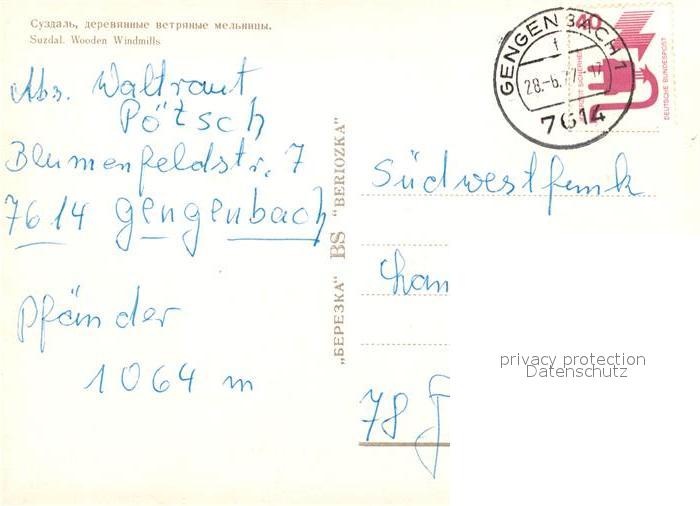 Суздаль, деревянные ветряные мельницы.
Suzdal. Wooden Windmills
Abs. Waltraut
Pötsch
Blumenfeldstr. 7
7614 Gengenbach
Pfänder
1064 m
„БЕРЕЗКА" BS "BERIOZKA"
GENGENBACH 1
f
28.-6.77-17
7614
40
DEUTSCHE BUNDESPOST
Südwestfunk
78
privacy protection
Datenschutz